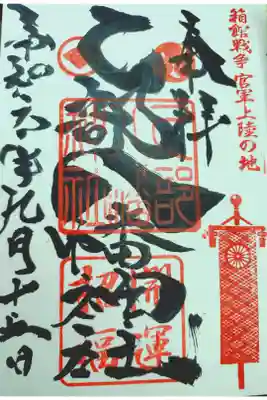 箱館戦争 官軍上陸の地
奉拝
乙部八幡神社
開運
招福
令和六年九月十五日